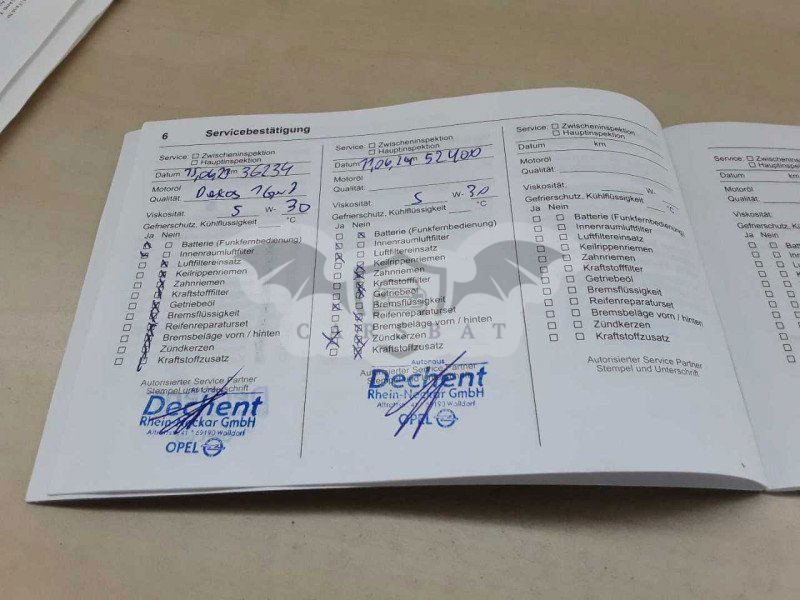 6 Servicebestätigung
Service: Zwischeninspektion
Hauptinspektion
Datum km 36234
Motoröl
Qualität:
Viskosität 5 W- 30
Gefrierschutz, Kühlflüssigkeit °C
Ja Nein
Batterie (Funkfernbedienung)
Innenraumluftfilter
Luftfiltereinsatz
Keilrippenriemen
Zahnriemen
Kraftstofffilter
Getriebeöl
Bremsflüssigkeit
Reifenreparaturset
Bremsbeläge vorn / hinten
Zündkerzen
Kraftstoffzusatz
Autorisierter Service Partner
Stempel und Unterschrift
Dechent
Rhein-Neckar GmbH
69190 Walldorf
OPEL
Service: Zwischeninspektion
Hauptinspektion
Datum 11.06.24 52400
Motoröl
Qualität:
Viskosität: 5 W- 30
Gefrierschutz, Kühlflüssigkeit °C
Ja Nein
Batterie (Funkfernbedienung)
Innenraumluftfilter
Luftfiltereinsatz
Keilrippenriemen
Zahnriemen
Kraftstofffilter
Getriebeöl
Bremsflüssigkeit
Reifenreparaturset
Bremsbeläge vorn / hinten
Zündkerzen
Kraftstoffzusatz
Autohaus
Autorisierter Service Partner
Dechent
Rhein-Neckar GmbH
69190 Walldorf
OPEL
Service: Zwischeninspektion
Hauptinspektion
Datum km
Motoröl
Qualität:
Viskosität: W-
Gefrierschutz, Kühlflüssigkeit °C
Ja Nein
Batterie (Funkfernbedienung)
Innenraumluftfilter
Luftfiltereinsatz
Keilrippenriemen
Zahnriemen
Kraftstofffilter
Getriebeöl
Bremsflüssigkeit
Reifenreparaturset
Bremsbeläge vorn / hinten
Zündkerzen
Kraftstoffzusatz
Autorisierter Service Partner
Stempel und Unterschrift
Service: Zwischeninspektion
Hauptinspektion
Datum km
Motoröl
Qualität:
Viskosität:
Gefrierschutz, Kühlflüssigkeit
Ja Nein
CARSBAT